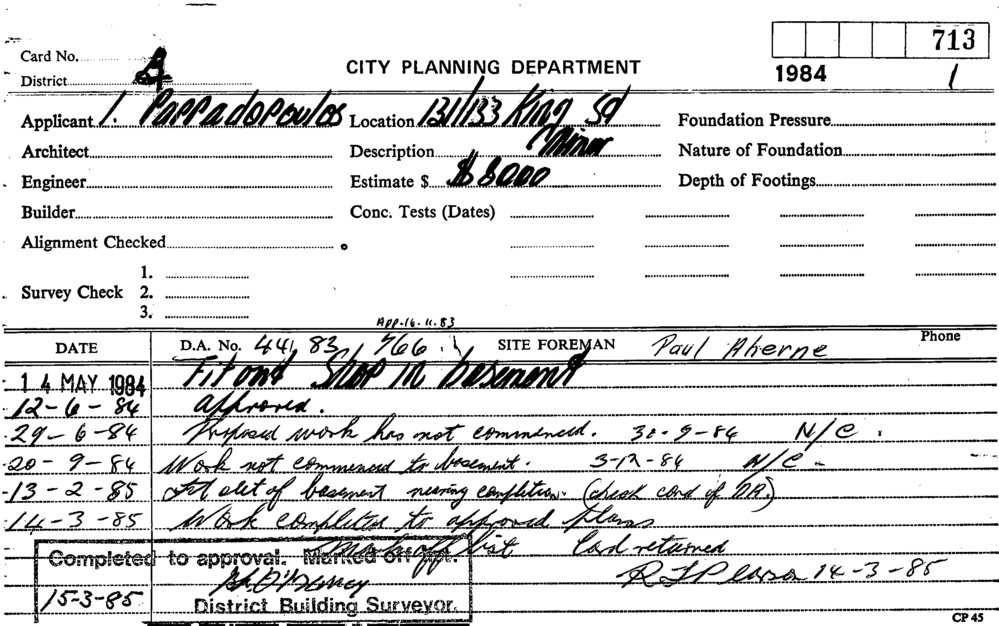 713
Card No.
CITY PLANNING DEPARTMENT
1984 1
District
Applicant I. Pappadopoulos Location 131/133 King St Foundation Pressure
Architect Description Minor Nature of Foundation
Engineer Estimate $ $8000 Depth of Footings
Builder Conc. Tests (Dates)
Alignment Checked
1.
Survey Check 2.
3.
App. 16.11.83
DATE D.A. No. 44 83 766 SITE FOREMAN Paul Aherne Phone
14 MAY 1984 Fitout Shop in basement
12-6-84 approved.
29-6-84 Proposed work has not commenced. 30-9-84 N/C.
20-9-84 Work not commenced to basement. 3-12-84 N/C-
13-2-85 Fit out of basement nearing completion. (check cond of DA.)
14-3-85 Work completed to approved plans
Mark off list Card returned
Completed to approval. Marked off list.
14-3-85
15-3-85 District Building Surveyor.
CP 45